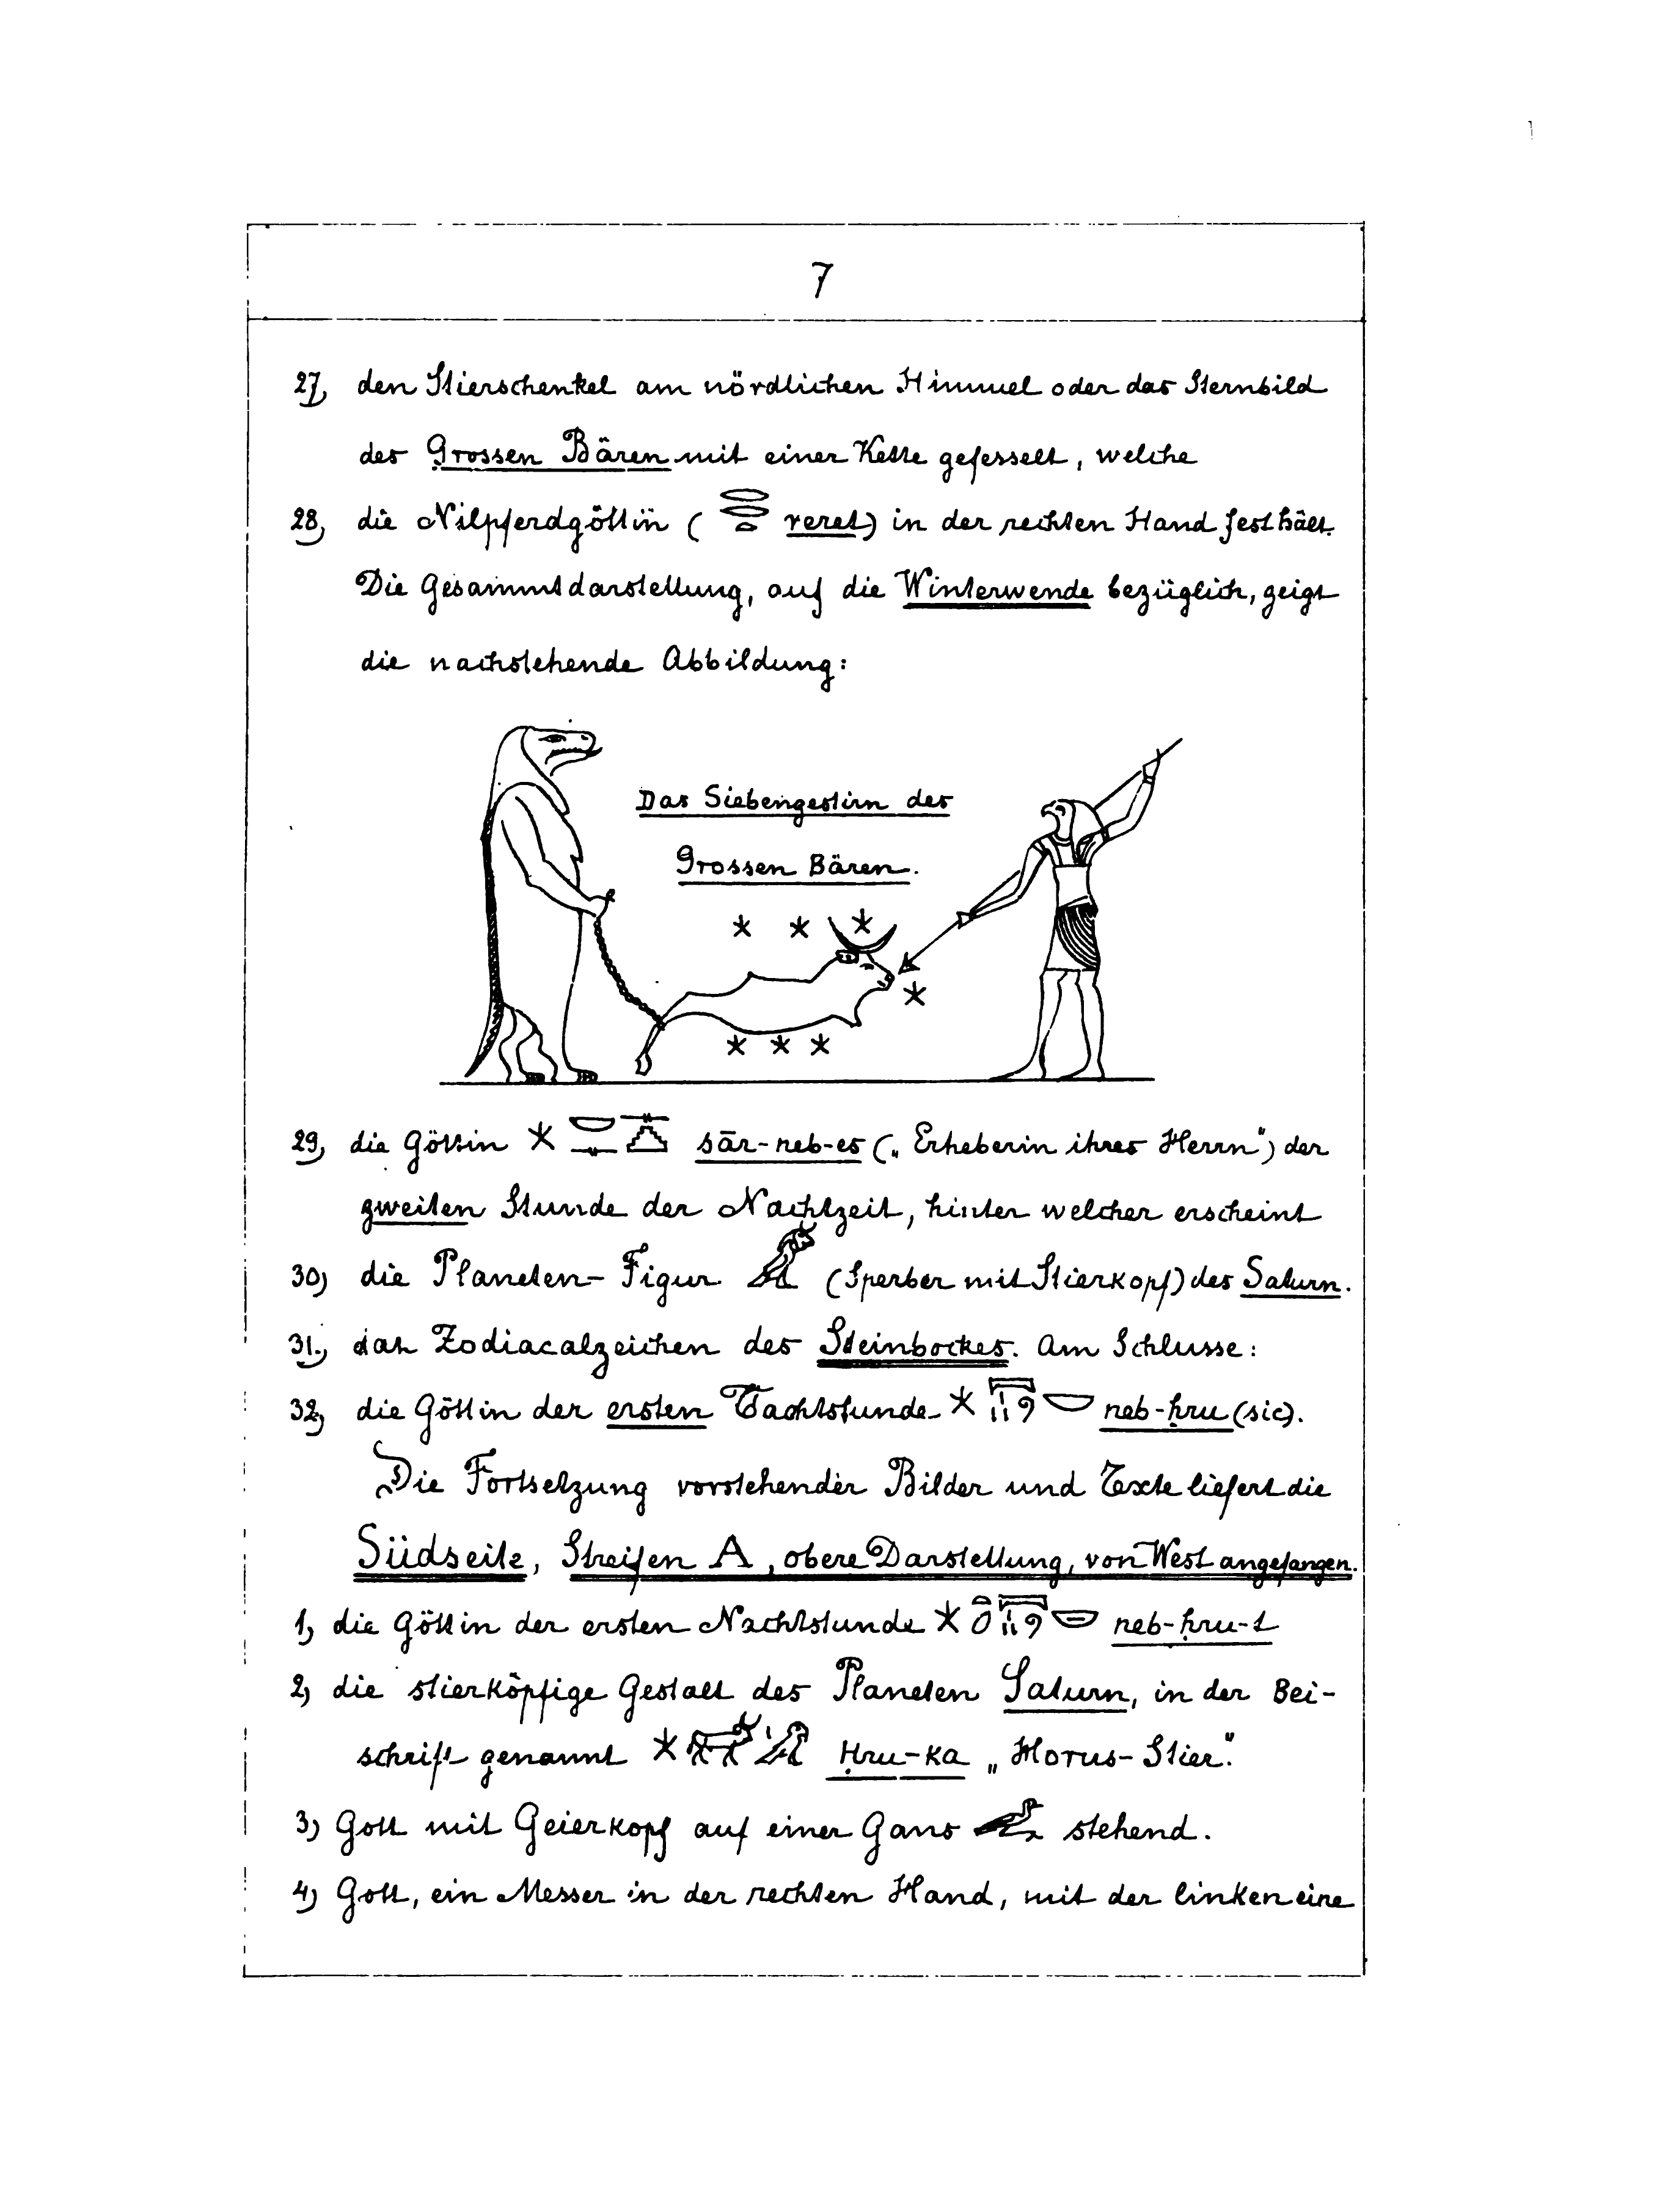 7
27, den Stierschenkel am nördlichen Himmel oder das Sternbild
des Grossen Bären mit einer Kette gefesselt, welche
28, die Nilpferdgöttin ( 𓂋𓂋𓏏 reret) in der rechten Hand festhält.
Die Gesammtdarstellung, auf die Winterwende bezüglich, zeigt
die nachstehende Abbildung:
Das Siebengestirn des
Grossen Bären.
29, die Göttin sār-neb-es („Erheberin ihres Herrn") der
zweiten Stunde der Nachtzeit, hinter welcher erscheint
30) die Planeten-Figur (Sperber mit Stierkopf) des Saturn.
31., das Zodiacalzeichen des Steinbockes. Am Schlusse:
32, die Göttin der ersten neb-ḥru (sic).
Die Fortsetzung vorstehender Bilder und Texte liefert die
Südseite, Streifen A, obere Darstellung, von West angefangen.
1, die Göttin der ersten Nachtstunde neb-ḥru-t
2, die stierköpfige Gestalt des Planeten Saturn, in der Bei-
schrift genannt Ḥru-ka „Horus-Stier".
3) Gott mit Geierkopf auf einer Gans stehend.
4) Gott, ein Messer in der rechten Hand, mit der linken eine